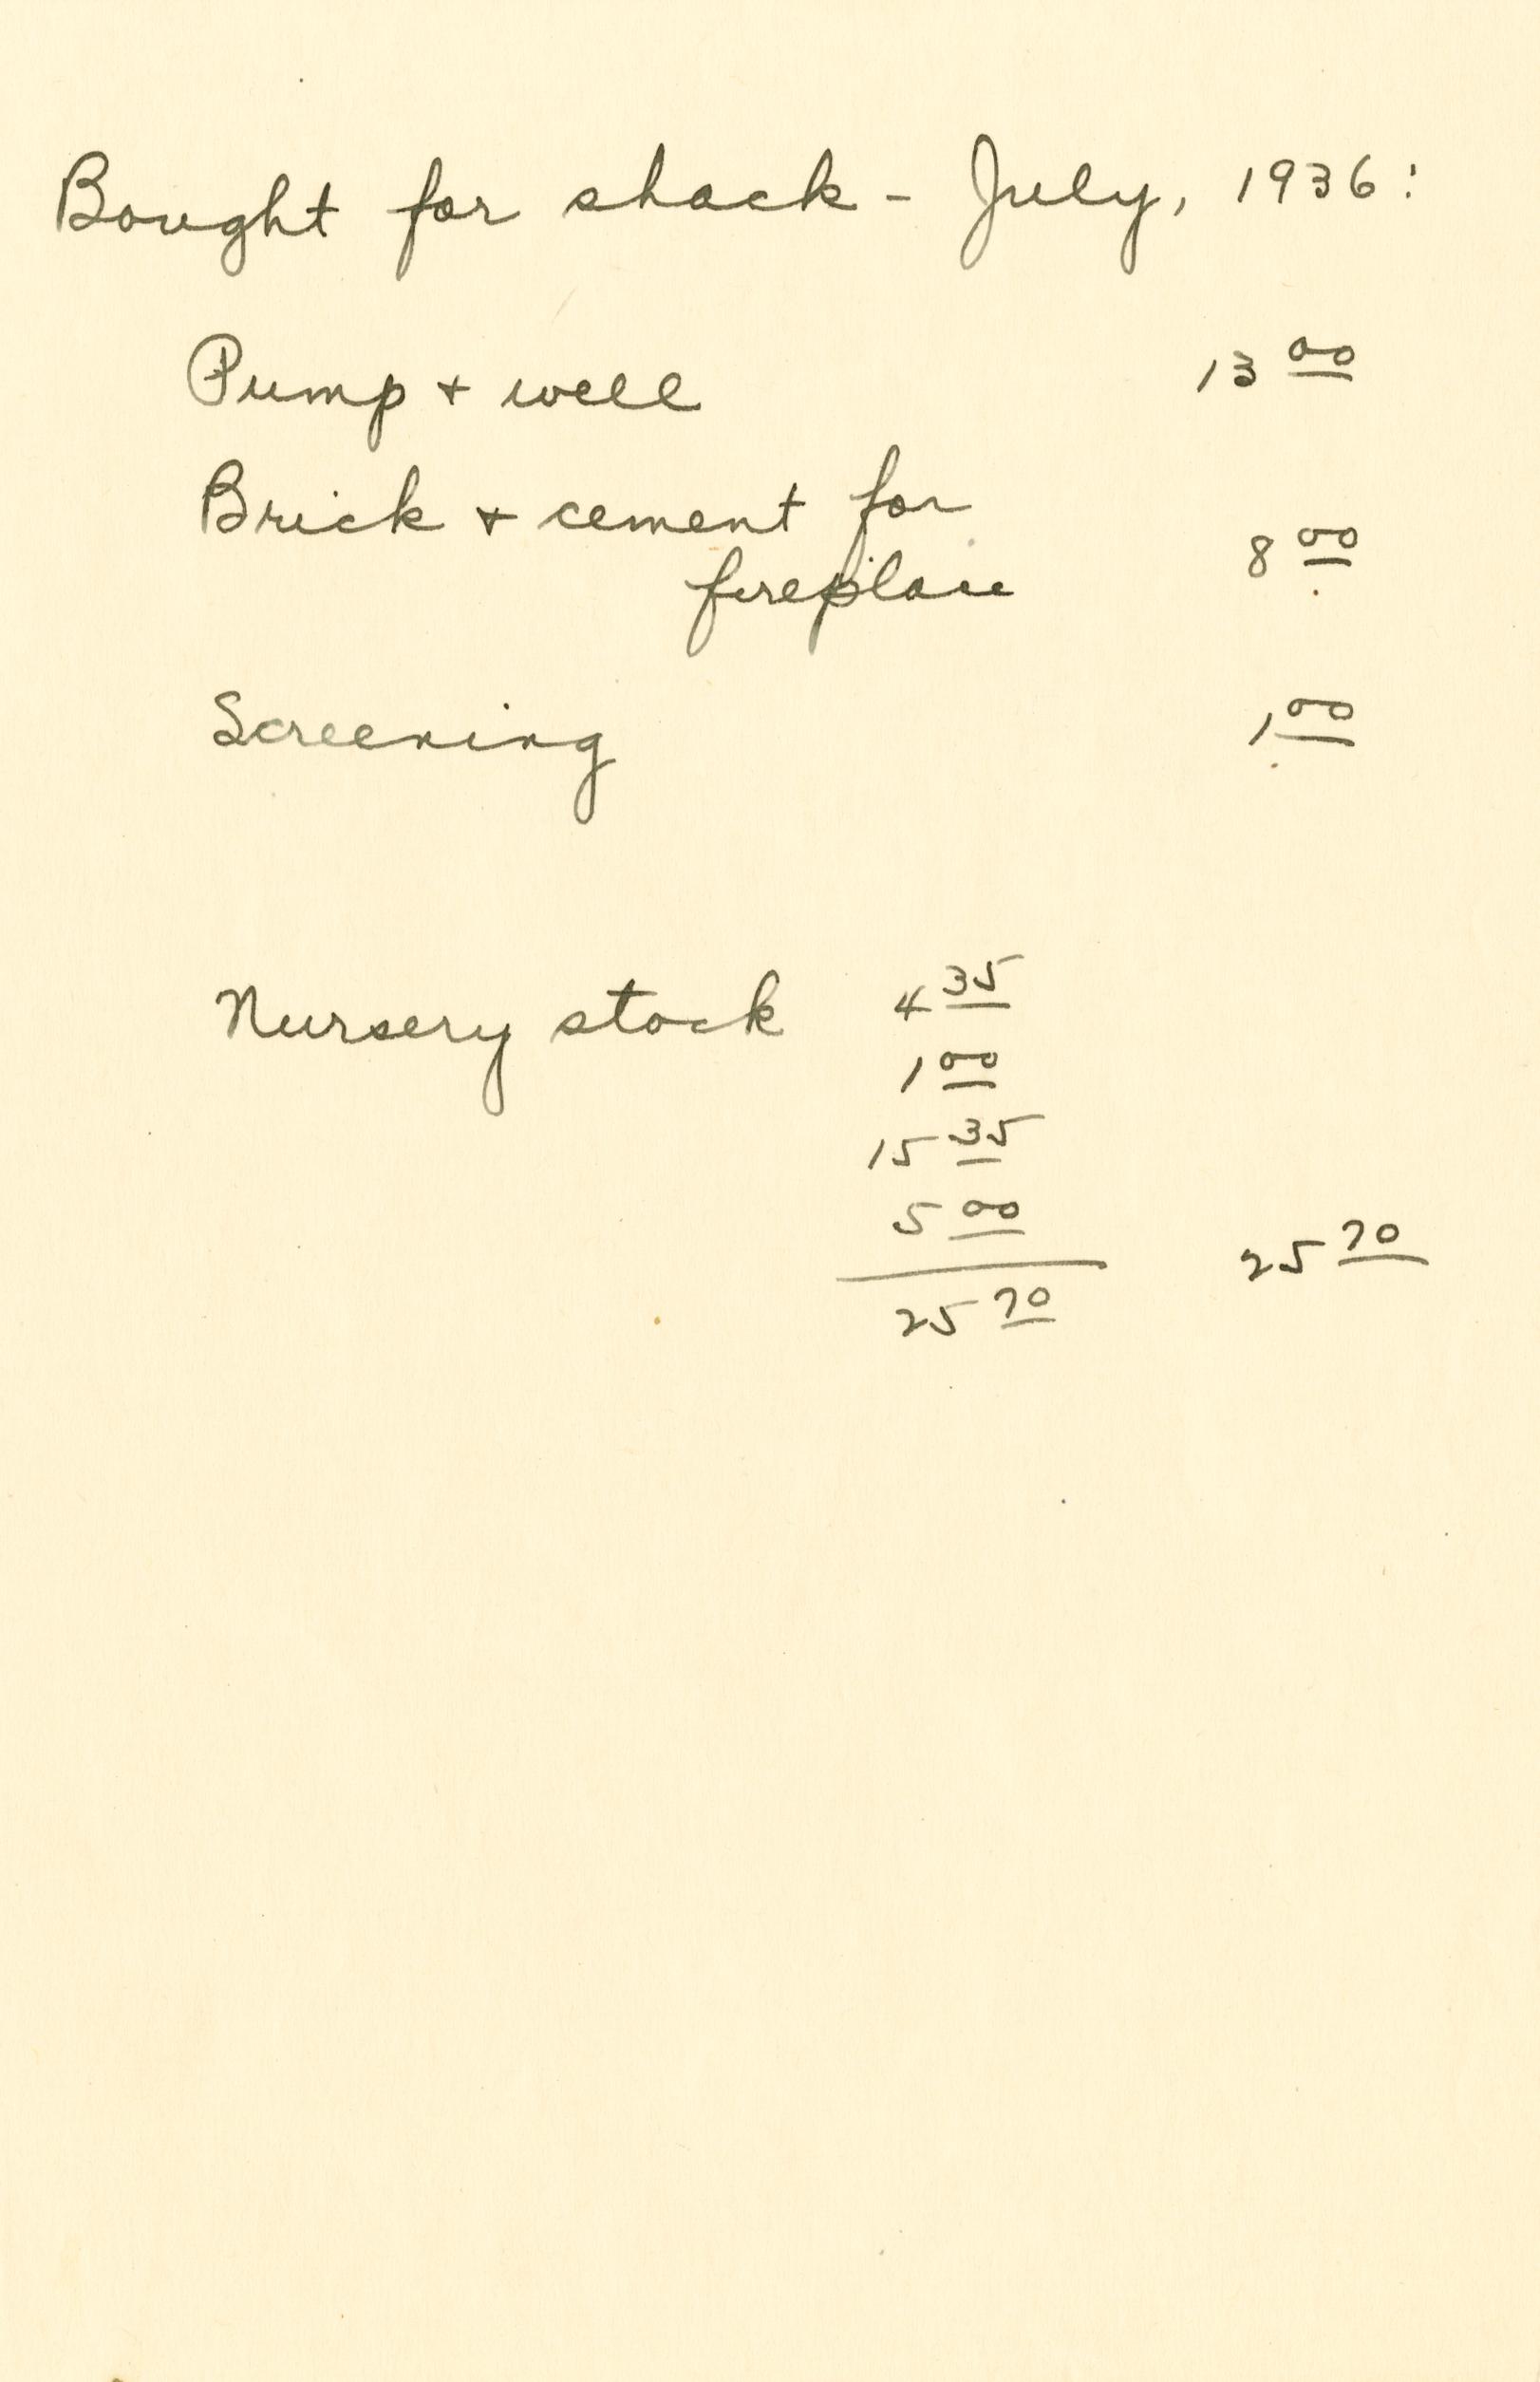 Bought for shack - July, 1936:
Pump + well 13 00
Brick + cement for
fireplace 8 00
Screening 1 00
Nursery stock 4 35
1 00
15 35
5 00
25 70 25 70